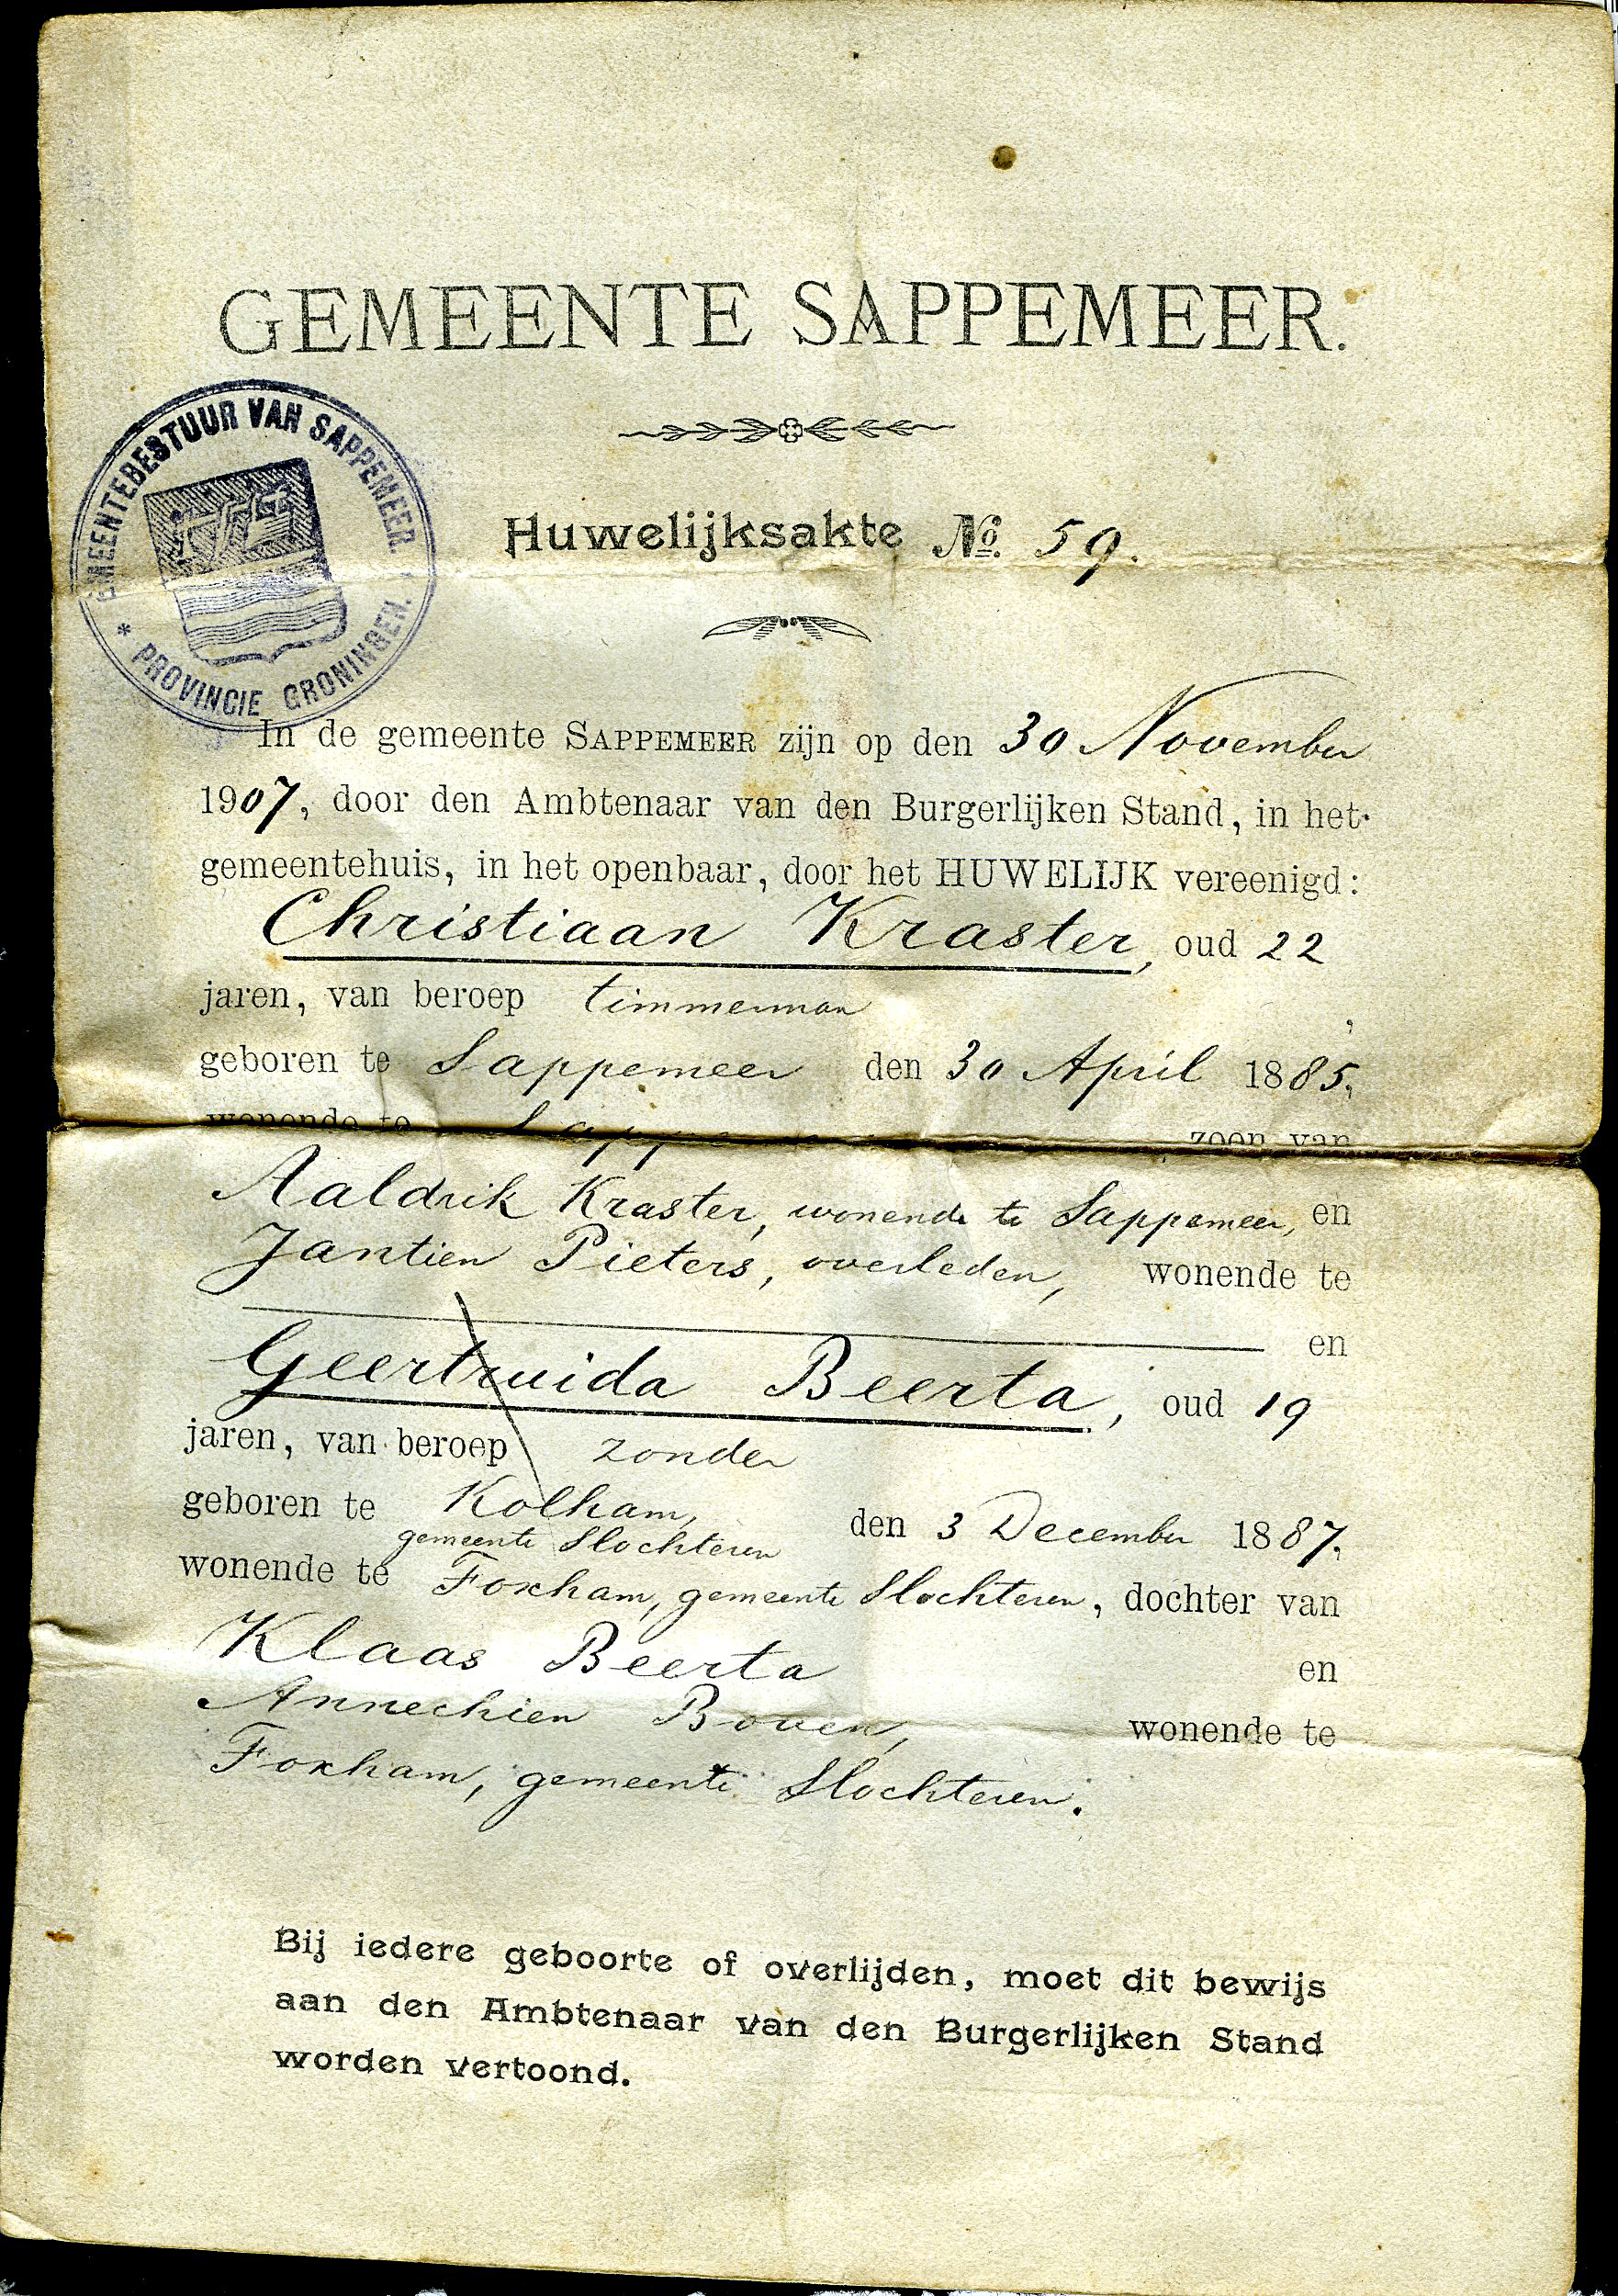 GEMEENTE SAPPEMEER.
GEMEENTEBESTUUR VAN SAPPEMEER.
* PROVINCIE GRONINGEN.
Huwelijksakte No. 59.
In de gemeente SAPPEMEER zijn op den 30 November
1907, door den Ambtenaar van den Burgerlijken Stand, in het
gemeentehuis, in het openbaar, door het HUWELIJK vereenigd:
Christiaan Kraster, oud 22
jaren, van beroep timmerman,
geboren te Sappemeer den 30 April 1885,
wonende te Sappemeer, zoon van
Aaldrik Kraster, wonende te Sappemeer, en
Jantien Pieters, overleden, wonende te
en
Geertruida Beerta, oud 19
jaren, van beroep zonder
geboren te Kolham, den 3 December 1887,
gemeente Slochteren
wonende te Foxham, gemeente Slochteren, dochter van
Klaas Beerta en
Annechien Boven, wonende te
Foxham, gemeente Slochteren.
Bij iedere geboorte of overlijden, moet dit bewijs
aan den Ambtenaar van den Burgerlijken Stand
worden vertoond.